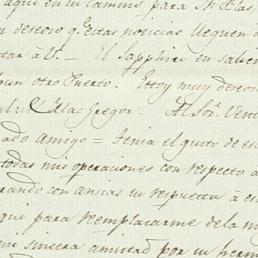 aqui en tu camino para Sn Blas,
deseoso q. Estas noticias lleguen
tar á V. — El Sapphire en saber
gun otro Puerto. Estoy muy deseo
Mac Gregor. Al Sor. Vent
ado Amigo = Tenia el gusto de es
todas mis operaciones con respecto a
rando con ansias su respuesta á es
qui para reemplazarme de la m
sincera amistad por su herm